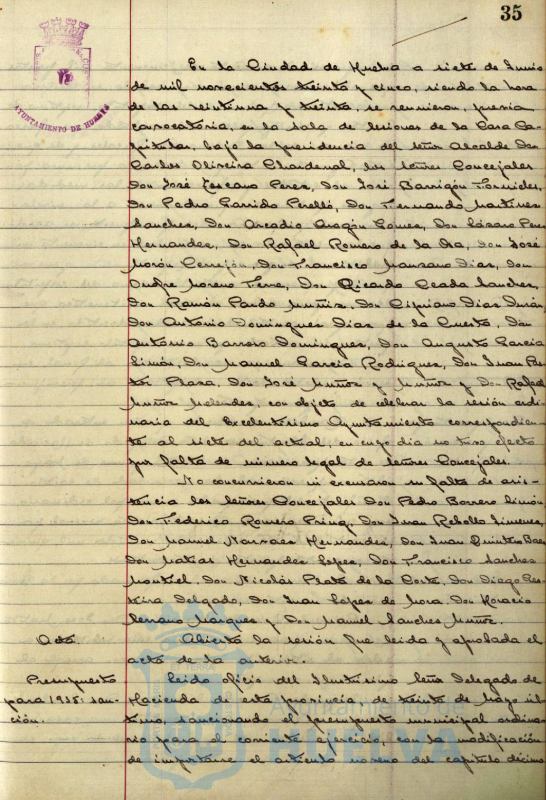 35
AYUNTAMIENTO DE HUELVA
En la Ciudad de Huelva a siete de Junio
de mil novecientos treinta y cinco, siendo la hora
de las veintiuna y treinta, se reunieron, previa
convocatoria, en la sala de sesiones de la Casa Ca-
pitular, bajo la presidencia del señor Alcalde Don
Carlos Oliveira Chardenal, los señores Concejales
Don José Toscano Perez, Don José Barrigón Fornieles,
Don Pedro Garrido Perelló, Don Fernando Martinez
Sanchez, Don Arcadio Aragón Gomez, Don Lázaro Perez
Hernandez, Don Rafael Romero de la Osa, Don José
Morón Cerrejón, Don Francisco Manzano Dias, Don
Onofre Moreno Ferre, Don Ricardo Ceada Sanchez,
Don Ramón Pardo Muñiz, Don Cipriano Dias Durán,
Don Antonio Dominguez Dias de la Cuesta, Don
Antonio Barroso Dominguez, Don Augusto Garcia
Limón, Don Manuel Garcia Rodriguez, Don Juan
Plaza, Don José Muñoz y Muñoz y Don Rafael
Muñiz Melendez, con objeto de celebrar la sesión ordi-
naria del Excelentísimo Ayuntamiento correspondien-
te al siete del actual, en cuyo dia no tuvo efecto
por falta de número legal de señores Concejales.
No concurrieron ni excusaron su falta de asis-
tencia los señores Concejales Don Pedro Borrero Limón
Don Federico Romero Don Juan Rebollo Jimenez,
Don Manuel Narvaez Hernandez, Don Juan Quintero Baez
Don Matias Hernandez Lopez, Don Francisco Sanchez
Montiel, Don Nicolás Plata de la Corte, Don Diego
Delgado, Don Juan Lopez de Mora, Don Horacio
Serrano Marquez y Don Manuel Sanchez Muñoz.
Acta. Abierta la sesión fue leida y aprobada el
acta de la anterior.
Presupuesto Leido oficio del Ilustrísimo Señor Delegado de
para 1935: san- Hacienda de esta provincia de treinta de Mayo úl-
ción. timo, sancionando el presupuesto municipal ordina-
rio para el corriente ejercicio, con la modificación
de importarse el articulo noveno del capitulo décimo
Ayuntamiento de
HUELVA